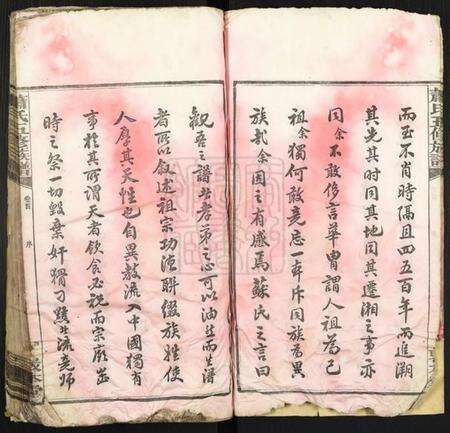 而至不肖時隔且四五百年而進溯
其先其時同其地同其遷湘之事亦
同余不敢侈言華胄謂人祖為己
祖余獨何敢竟忘一本斥同族為異
族哉余因之有感焉蘇氏之言曰
觀吾之譜者孝弟之心可以油然而生譜
者所以敘述祖宗功德聯綴族姓使
人厚其天性也自異教流入中國獨有
事於其所謂天者飲食必祝而宗廟歲
時之祭一切毀棄奸猾刁黠之流竟師
蕭氏五修族譜
卷首
序